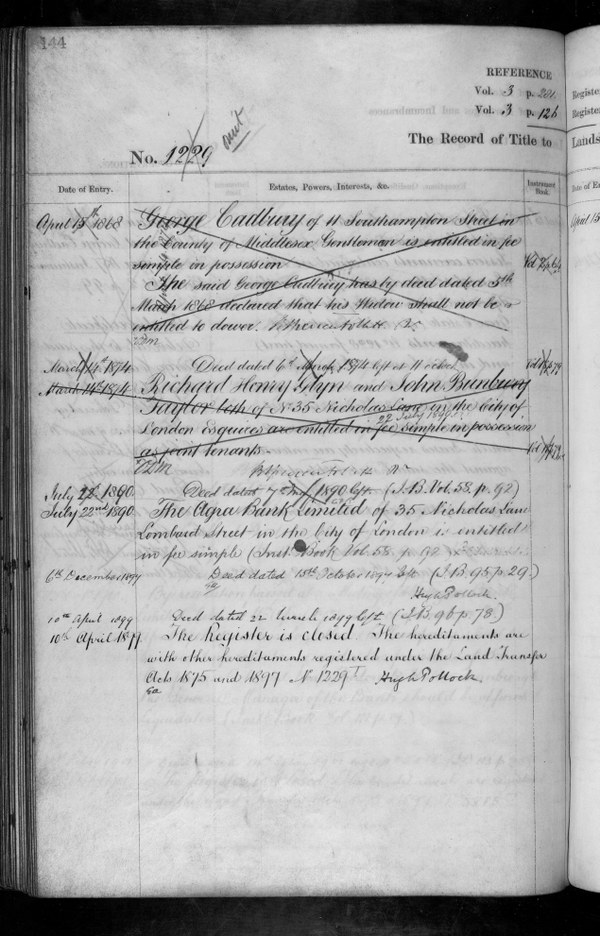 144
REFERENCE
Vol. 3 p. 201
Vol. 3 p. 126
The Record of Title to
No. 1229
Date of Entry.
Estates, Powers, Interests, &c.
Instrument Book.
April 15th 1868
George Cadbury of 11 Southampton Street in
the County of Middlesex Gentleman is entitled in fee
simple in possession
The said George Cadbury has by deed dated 5th
March 1868 declared that his Widow shall not be
entitled to dower.
March 14th 1874
Deed dated 6th March 1874 left at 11 o'clock
March 14th 1874
Richard Henry Glyn and John Bunbury
Taylor both of No 35 Nicholas Lane in the City of
22 July 1890
London Esquires are entitled in fee simple in possession
as joint tenants.
July 22nd 1890
Deed dated 7th July 1890 left (I.B. Vol. 58. p. 92)
July 22nd 1890
The Agra Bank Limited of 35 Nicholas Lane
Lombard Street in the City of London is entitled
in fee simple (Inst. Book Vol. 58. p. 92
6th December 1894
Deed dated 18th October 1894 left (I.B. 95 p 29.)
Hugh Pollock.
10th April 1899
Deed dated 22 March 1899 left. (I.B. 96 p. 78.)
10th April 1899
The Register is closed. The hereditaments are
with other hereditaments registered under the Land Transfer
Acts 1875 and 1897 No 1229
Hugh Pollock.
Register
Register
Lands
Date of E
April 15